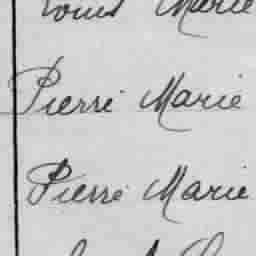 Louis Marie
Pierre Marie
Pierre Marie